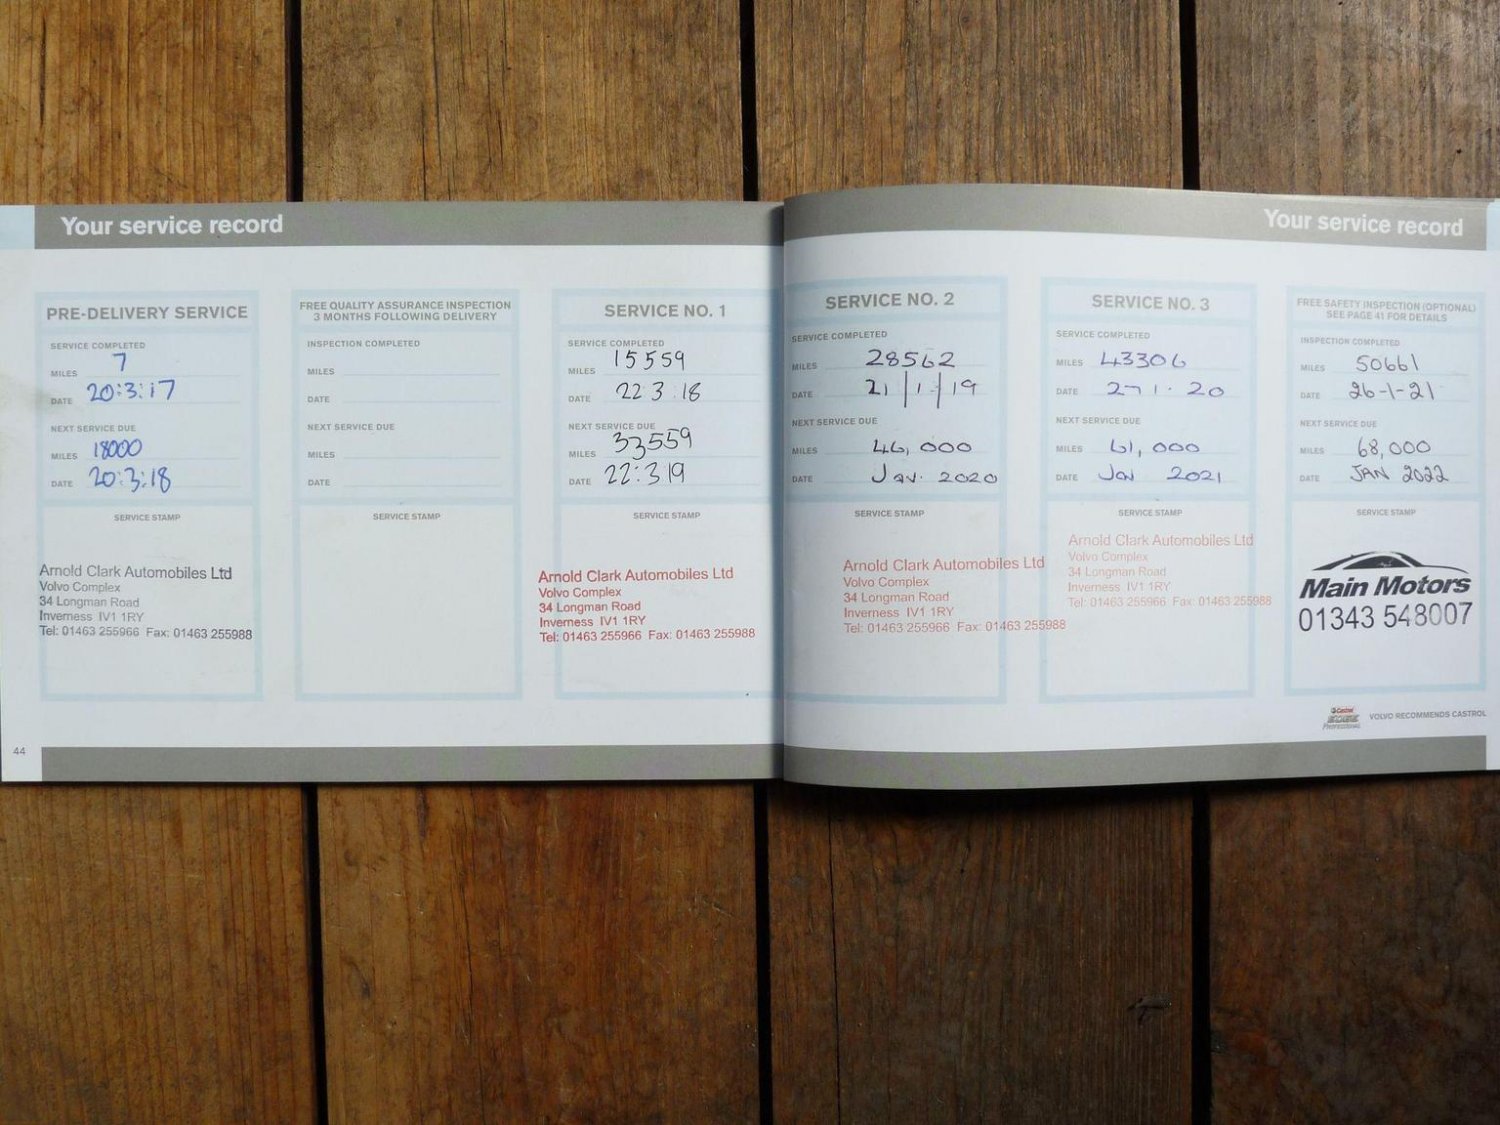 Your service record
PRE-DELIVERY SERVICE
SERVICE COMPLETED
MILES 7
DATE 20:3:17
NEXT SERVICE DUE
MILES 18000
DATE 20:3:18
SERVICE STAMP
Arnold Clark Automobiles Ltd
Volvo Complex
34 Longman Road
Inverness IV1 1RY
Tel: 01463 255966 Fax: 01463 255988
FREE QUALITY ASSURANCE INSPECTION
3 MONTHS FOLLOWING DELIVERY
INSPECTION COMPLETED
MILES
DATE
NEXT SERVICE DUE
MILES
DATE
SERVICE STAMP
SERVICE NO. 1
SERVICE COMPLETED
MILES 15559
DATE 22 3 18
NEXT SERVICE DUE
MILES 33559
DATE 22:3 19
SERVICE STAMP
Arnold Clark Automobiles Ltd
Volvo Complex
34 Longman Road
Inverness IV1 1RY
Tel: 01463 255966 Fax: 01463 255988
44
Your service record
SERVICE NO. 2
SERVICE COMPLETED
MILES 28562
DATE 21/1/19
NEXT SERVICE DUE
MILES 46,000
DATE Jan. 2020
SERVICE STAMP
Arnold Clark Automobiles Ltd
Volvo Complex
34 Longman Road
Inverness IV1 1RY
Tel: 01463 255966 Fax: 01463 255988
SERVICE NO. 3
SERVICE COMPLETED
MILES 43306
DATE 27 1 · 20
NEXT SERVICE DUE
MILES 61,000
DATE Jan 2021
SERVICE STAMP
Arnold Clark Automobiles Ltd
Volvo Complex
34 Longman Road
Inverness IV1 1RY
Tel: 01463 255966 Fax: 01463 255988
FREE SAFETY INSPECTION (OPTIONAL)
SEE PAGE 41 FOR DETAILS
INSPECTION COMPLETED
MILES 50661
DATE 26-1-21
NEXT SERVICE DUE
MILES 68,000
DATE JAN 2022
SERVICE STAMP
Main Motors
01343 548007
Castrol
EDGE
PROFESSIONAL
VOLVO RECOMMENDS CASTROL